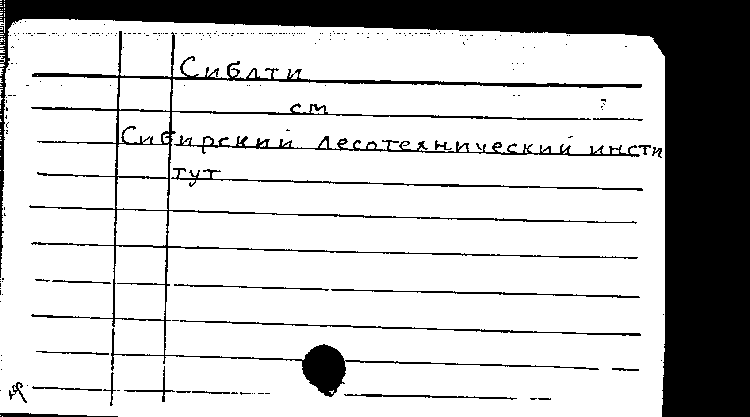 Сиблти
см
Сибирский лесотехнический инсти
тут